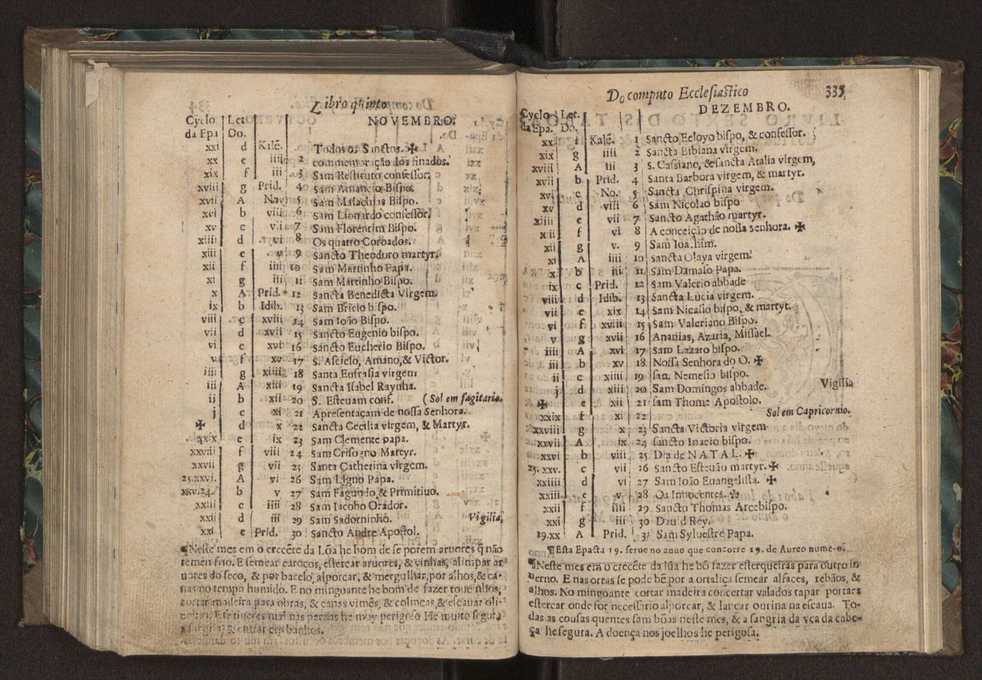 Libro quinto
NOVEMBRO.
Cyclo Let.
da Epa Do.
xxi d Kalē. Todolos Sanctos. ✠
xx e iiii 2 commemoração dos finados.
xix f iii 3 Sam Restituto confessor.
xviii g Prid. 4 Sam Amancio Bispo.
xvii A No. 5 Sam Malachias Bispo.
xvi b viii 6 Sam Lionardo confessor.
xv c vii 7 Sam Florencim Bispo.
xiiii d vi 8 Os quatro Coroados.
xiii e v 9 Sancto Theodoro martyr.
xii f iiii 10 Sam Martinho Papa.
xi g iii 11 Sam Martinho Bispo.
x A Prid. 12 Sancta Benedicta Virgem.
ix b Idib. 13 Sam Bricio bispo.
viii c xviii 14 Sam Ioão Bispo.
vii d xvii 15 Sancto Eugenio bispo.
vi e xvi 16 Sancto Eucherio Bispo.
v f xv 17 S. Asciclo, Amano, & Victor.
iiii g xiiii 18 Santa Eufrasia virgem
iii A xiii 19 Sancta Isabel Raynha.
ii b xii 20 S. Esteuam conf. (Sol em sagitario.
j c xi 21 Apresentaçam de nossa Senhora.
✠ d x 22 Sancta Cecilia virgem, & Martyr.
xxix e ix 23 Sam Clemente papa.
xxviii f viii 24 Sam Crisogno Martyr.
xxvii g vii 25 Santa Catherina virgem.
25.xxvi. A vi 26 Sam Ligno Papa.
xxv.24. b v 27 Sam Fagundo & Primitiuo.
xxiii c iiii 28 Sam Iacobo Orador.
xxii d iii 29 Sam Sadorninho. Vigilia,
xxi e Prid. 30 Sancto Andre Apostol.
¶Neste mes em o crecēte da Lũa he bom de se porem aruores q̃ não
temem frio. E semear caroços, estercar aruores, & vinhas, alimpar ar
uores do seco, & por bacelo, alporcar, & mergulhar, por alhos, & ca-
nas no tempo humido. E no mingoante he bom de fazer toucinhos,
cortar madeira para obras, & canas vimēs, & colmeas, & escauar oli-
he muy perigoso He muito segura
& entrar em banhos.
Do computo Ecclesiastico 335
DEZEMBRO.
Cyclo Let.
da Epa. Do.
xx f Kalē. 1 Sancto Eeloyo bispo, & confessor.
xix g iiii 2 Sancta Bibiana virgem.
xviii A iii 3 S. Cassiano, & sancta Atalia virgem,
xvii b Prid. 4 Santa Barbora virgem, & martyr.
xvi c No. 5 Sancta Chrispina virgem.
xv d viii 6 Sam Nicolao bispo
xiiii e vii 7 Sancto Agathão martyr.
xiii f vi 8 A conceição de nossa senhora. ✠
xii g v. 9 Sam Ioachim.
xi A iiii 10 sancta Olaya virgem.
x b iii 11 Sam Damaso Papa.
ix c Prid. 12 Sam Valerio abbade
viii d Idib. 13 Sancta Lucia virgem.
vii e xix 14 Sam Nicasio bispo, & martyr.
vi f xviii 15 Sam Valeriano Bispo.
v g xvii 16 Ananias, Azaria, Missael.
iiii A xvi 17 Sam Lazaro bispo.
iii b xv 18 Nossa Senhora do O. ✠
ii c xiiii 19 san. Nemesio bispo.
j d xiii 20 Sam Domingos abbade. Vigilia
✠ e xii 21 sam Thome Apostolo.
xxix f xi 22 Sol em Capricornio.
xxviii g x 23 Sancta Victoria virgem
xxvii A ix 24 sancto Inacio bispo.
xxvi b viii 25 Dia de NATAL. ✠
25.xxv. c vii 26 Sancto Esteuão martyr. ✠
xxiiii d vi 27 Sam Ioão Euangelista. ✠
xxiii e v 28 Os Innocentes. ✠
xxii f iiii 29 Sancto Thomas Arcebispo.
xxi g iii 30 Dauid Rey.
19.xx A Prid. 31 Sam Syluestre Papa.
¶Esta Epacta 19. serue no anno que concorre 19. de Aureo numero.
¶Neste mes em o crecēte da lũa he bõ fazer esterqueiras para outro in
uerno. E nas ortas se pode bē por a ortaliça semear alfaces, rebãos, &
alhos. No mingoante cortar madeira concertar valados tapar portaes
estercar onde for necessario alporcar, & lançar ourina na escaua. To-
das as cousas quentes sam bõas neste mes, & a sangria da vea da cabe-
ça he segura. A doença nos joelhos he perigosa.